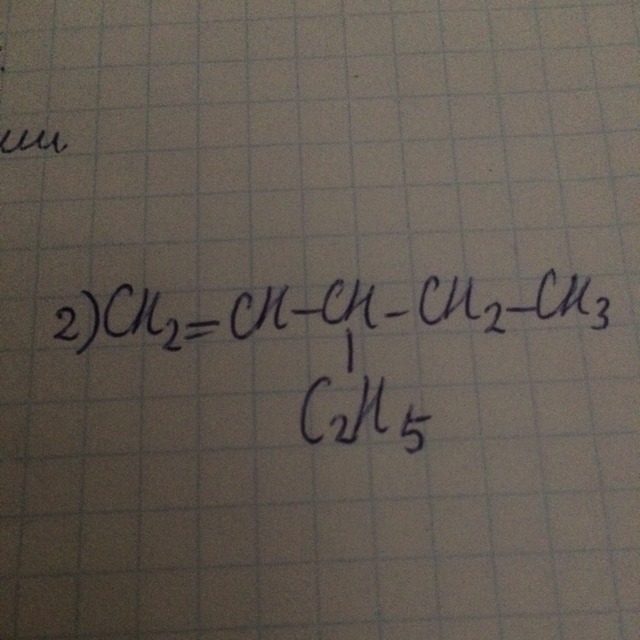 2) CH₂=CH-CH-CH₂-CH₃
|
C₂H₅